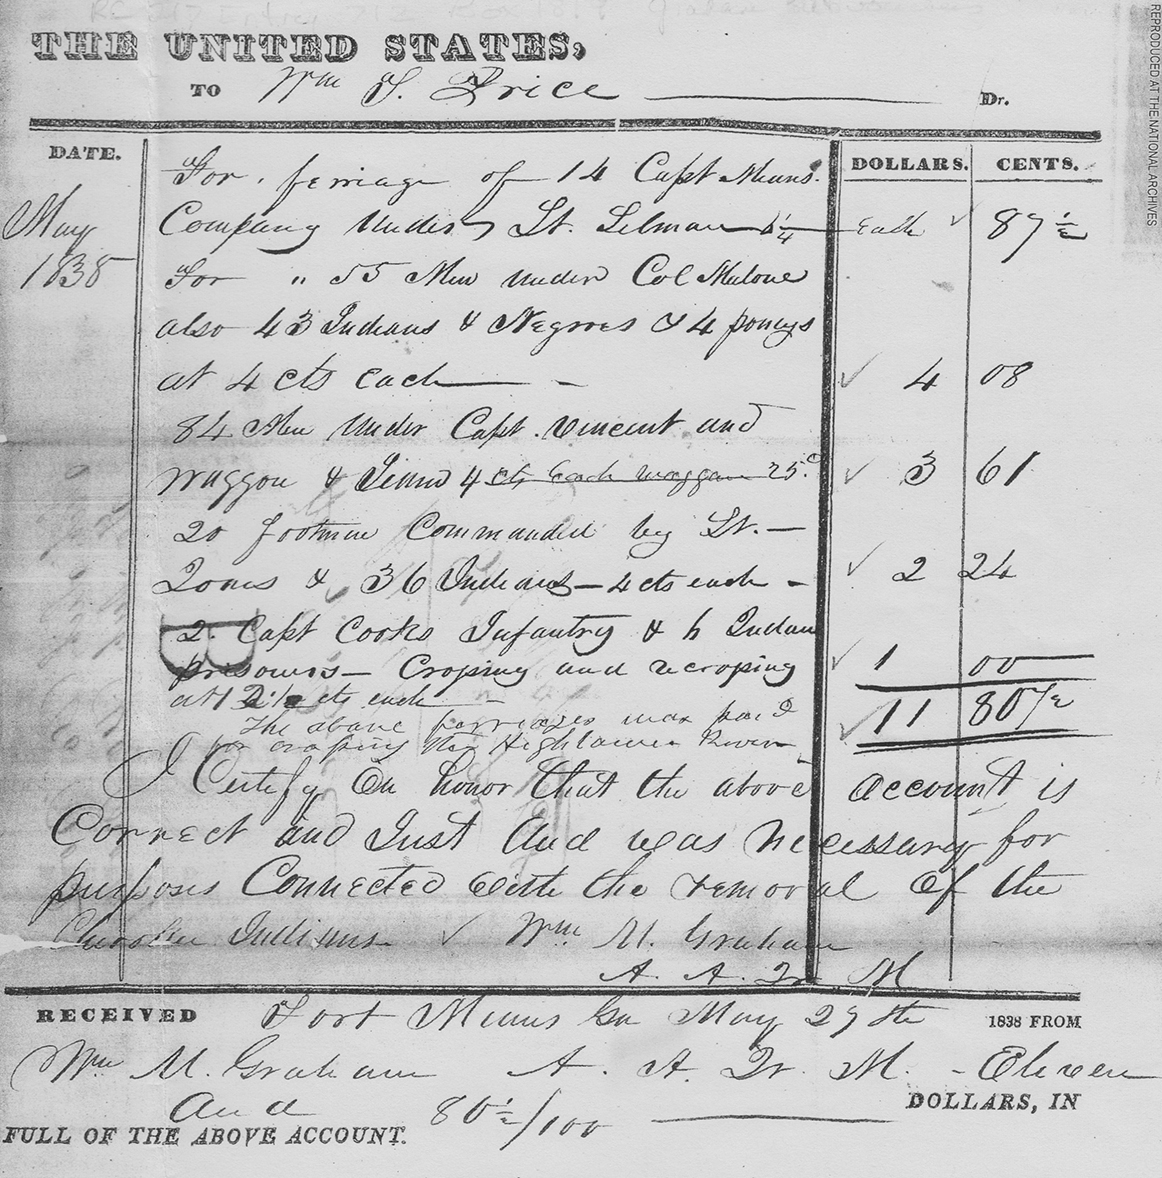 THE UNITED STATES,
TO Wm S. Price Dr.
REPRODUCED AT THE NATIONAL ARCHIVES
DATE. DOLLARS. CENTS.
For ferriage of 14 Capt Means
May Company Under Lt. 6¼ Each 87½
1838 For " 55 Men under Col Malone
also 43 Indians & Negroes & 4 poneys
at 4 cts each 4 08
84 Men Under Capt. Vincent and
waggon & Team 4 cts Each waggon 25c 3 61
20 footmen Commanded by Lt.
Jones & 36 Indians 4 cts each 2 24
2 Capt Cooks Infantry & 6 Indian
prisoners Croping and recroping 1 00
at 12½ cts each 11 80½
The above ferriages was paid
for croping the River
I Certify On honor that the above account is
Correct and Just And was necessary for
purposes Connected with the removal of the
Cherokee Indians Wm M. Graham
A. A. Qr M
RECEIVED Fort Means Ga May 29th 1838 FROM
Wm M. Graham A. A. Qr. M. Eleven
And 80½/100 DOLLARS, IN
FULL OF THE ABOVE ACCOUNT.